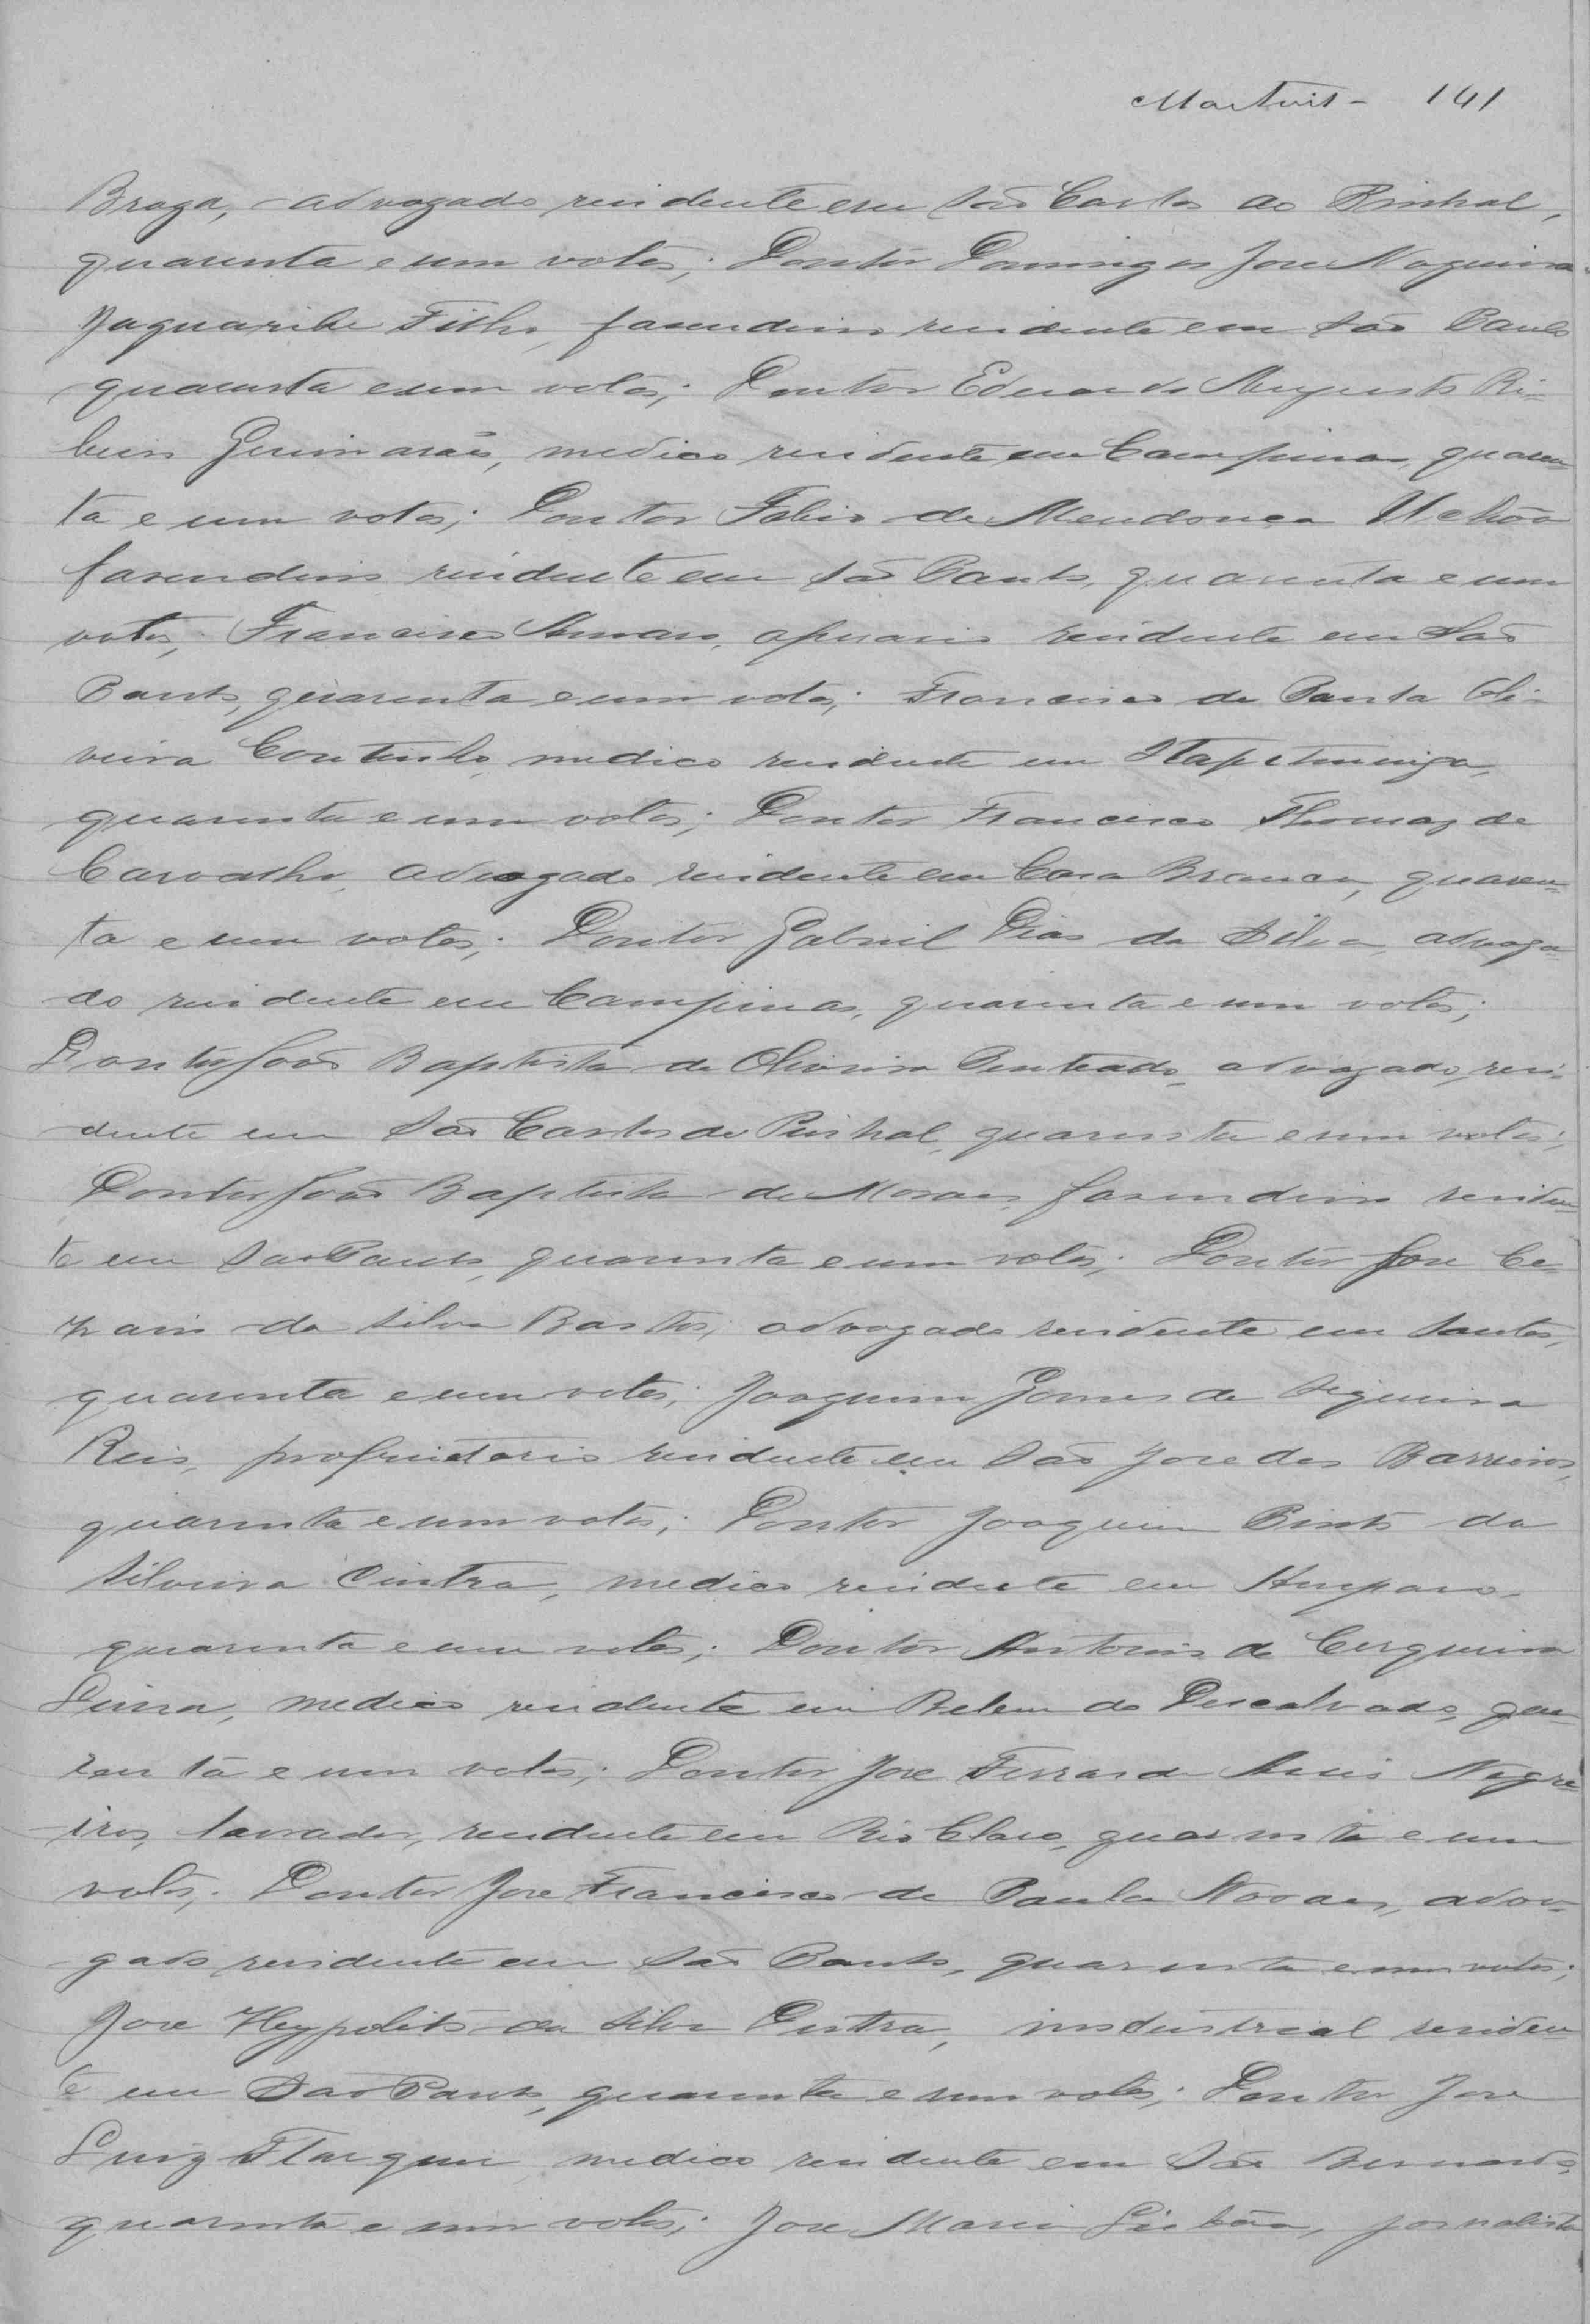 Martins - 141
Braga, advogado residente em São Carlos do Pinhal,
quarenta e um votos; Doutor Domingos Jose Nogueira
Jaguaribe Filho, fasendeiro residente em São Paulo
quarenta e um votos; Doutor Eduardo Augusto Ri-
beiro Guimarães, medico residente em Campinas, quaren-
ta e um votos; Doutor Fabio de Mendonça Uchôa
fasendeiro residente em São Paulo, quarenta e um
votos; Francisco Amaro, operario residente em São
Paulo, quarenta e um votos; Francisco de Paula Oli-
veira Coutinho, medico residente em Itapetininga,
quarenta e um votos; Doutor Francisco Thomaz de
Carvalho, advogado residente em Casa Branca, quaren-
ta e um votos; Doutor Gabriel Dias da Silva, advoga-
do residente em Campinas, quarenta e um votos;
Doutor João Baptista de Oliveira Penteado, advogado, resi-
dente em São Carlos do Pinhal, quarenta e um votos;
Doutor João Baptista de Moraes, fasendeiro residen-
te em São Paulo, quarenta e um votos; Doutor Jose Ce-
zario da Silva Bastos, advogado residente em Santos,
quarenta e um votos; Joaquim Gomes de Siqueira
Reis, proprietario residente em São Jose dos Barreiros,
quarenta e um votos; Doutor Joaquim Pinto da
Silveira Cintra, medico residente em Amparo
quarenta e um votos; Doutor Antonio de Cerqueira
Lima, medico residente em Belem do Descalvado, qua-
renta e um votos; Doutor Jose Ferraz de Assis Negre-
iros, lavrador, residente em Rio Claro, quarenta e um
votos; Doutor Jose Francisco de Paula Novaes, advo-
gado residente em São Paulo, quarenta e um votos;
Jose Hyppolito da Silva Dutra, industrial residen-
te em São Paulo, quarenta e um votos; Doutor Jose
Luiz Flaquer medico residente em São Bernardo,
quarenta e um votos; Jose Maria Lisbôa, jornalista